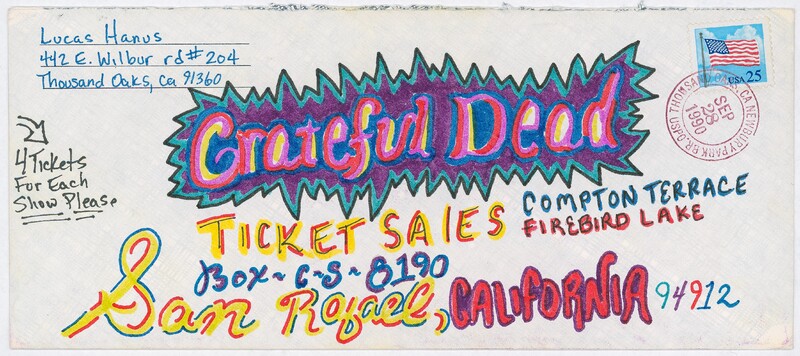 Lucas Hanus
442 E. Wilbur rd #204
Thousand Oaks, Ca 91360
USA 25
USPO THOUSAND OAKS, CA NEWBURY PARK BR.
SEP
28
1990
Grateful Dead
4 Tickets
For Each
Show Please
TICKET SALES
COMPTON TERRACE
FIREBIRD LAKE
Box - C - S - 8190
San Rafael, CALIFORNIA 94912